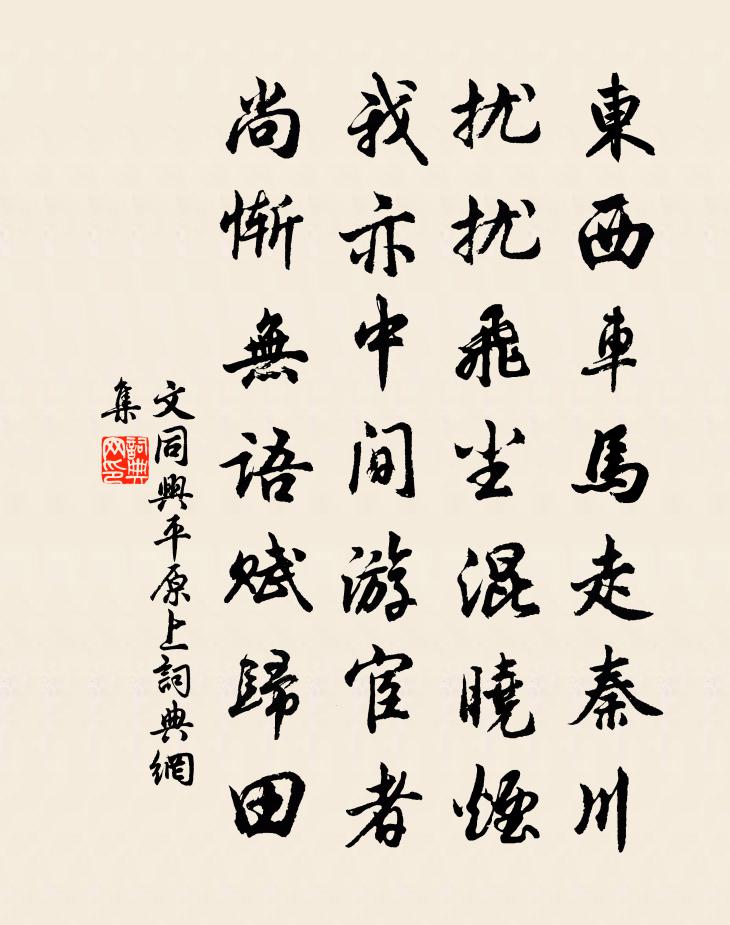 東西車馬走秦川
扰扰飛尘混曉煙
我亦中间游宦者
尚慚無語賦歸田
文同興平原上詞典網
集
詞典網印